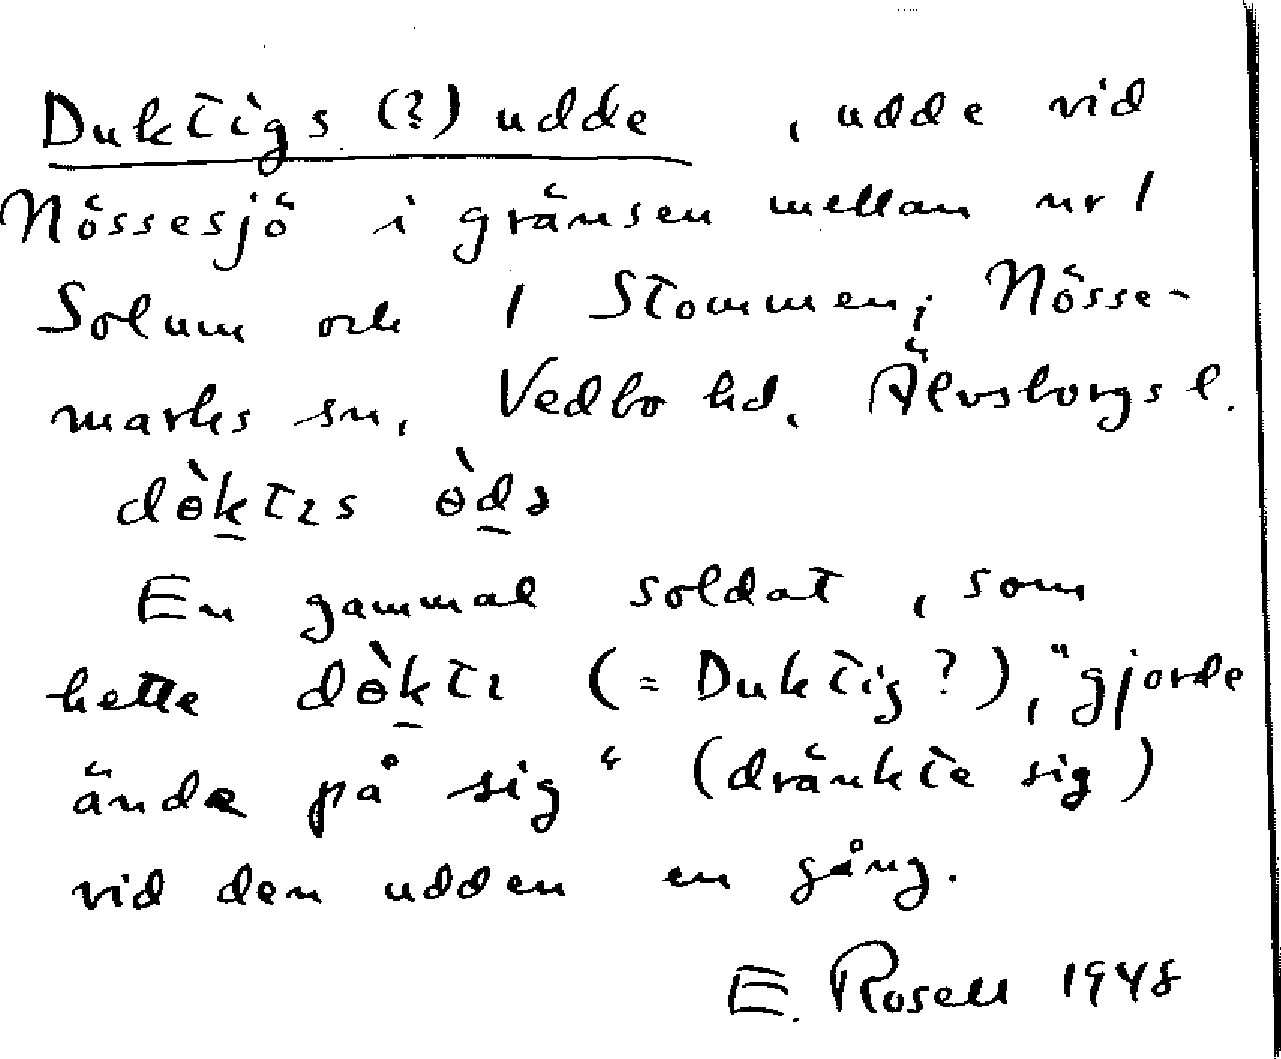 Duktigs (?) udde, udde vid
Nössesjö i gränsen mellan nr 1
Solum och 1 Stommen, Nösse-
marks sn, Vedbo hd, Älvsborgs l.
dɵ̀k̲tɩs ɵ̀d̲ə
En gammal soldat, som
hette dɵ̀k̲tɩ (= Duktig?), "gjorde
ände på sig" (dränkte sig)
vid den udden en gång.
E. Rosell 1948